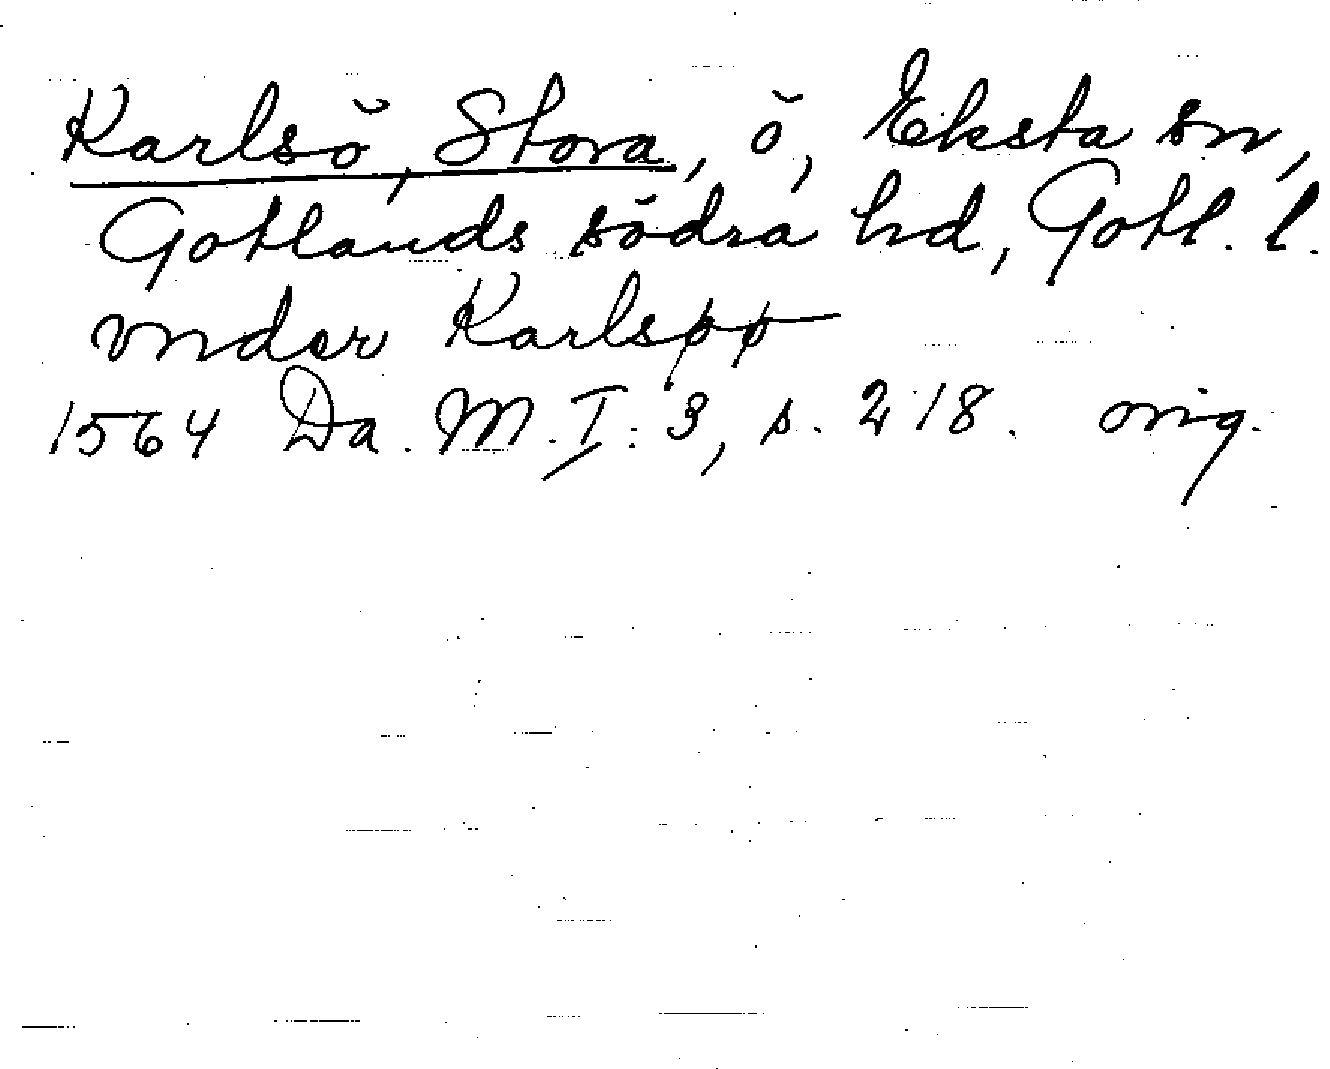 Karlsö, Stora, ö, Eksta sn,
Gotlands södra hd, Gotl. l.
vnder Karlsøø
1564 Da. M. I: 3, s. 218. orig.